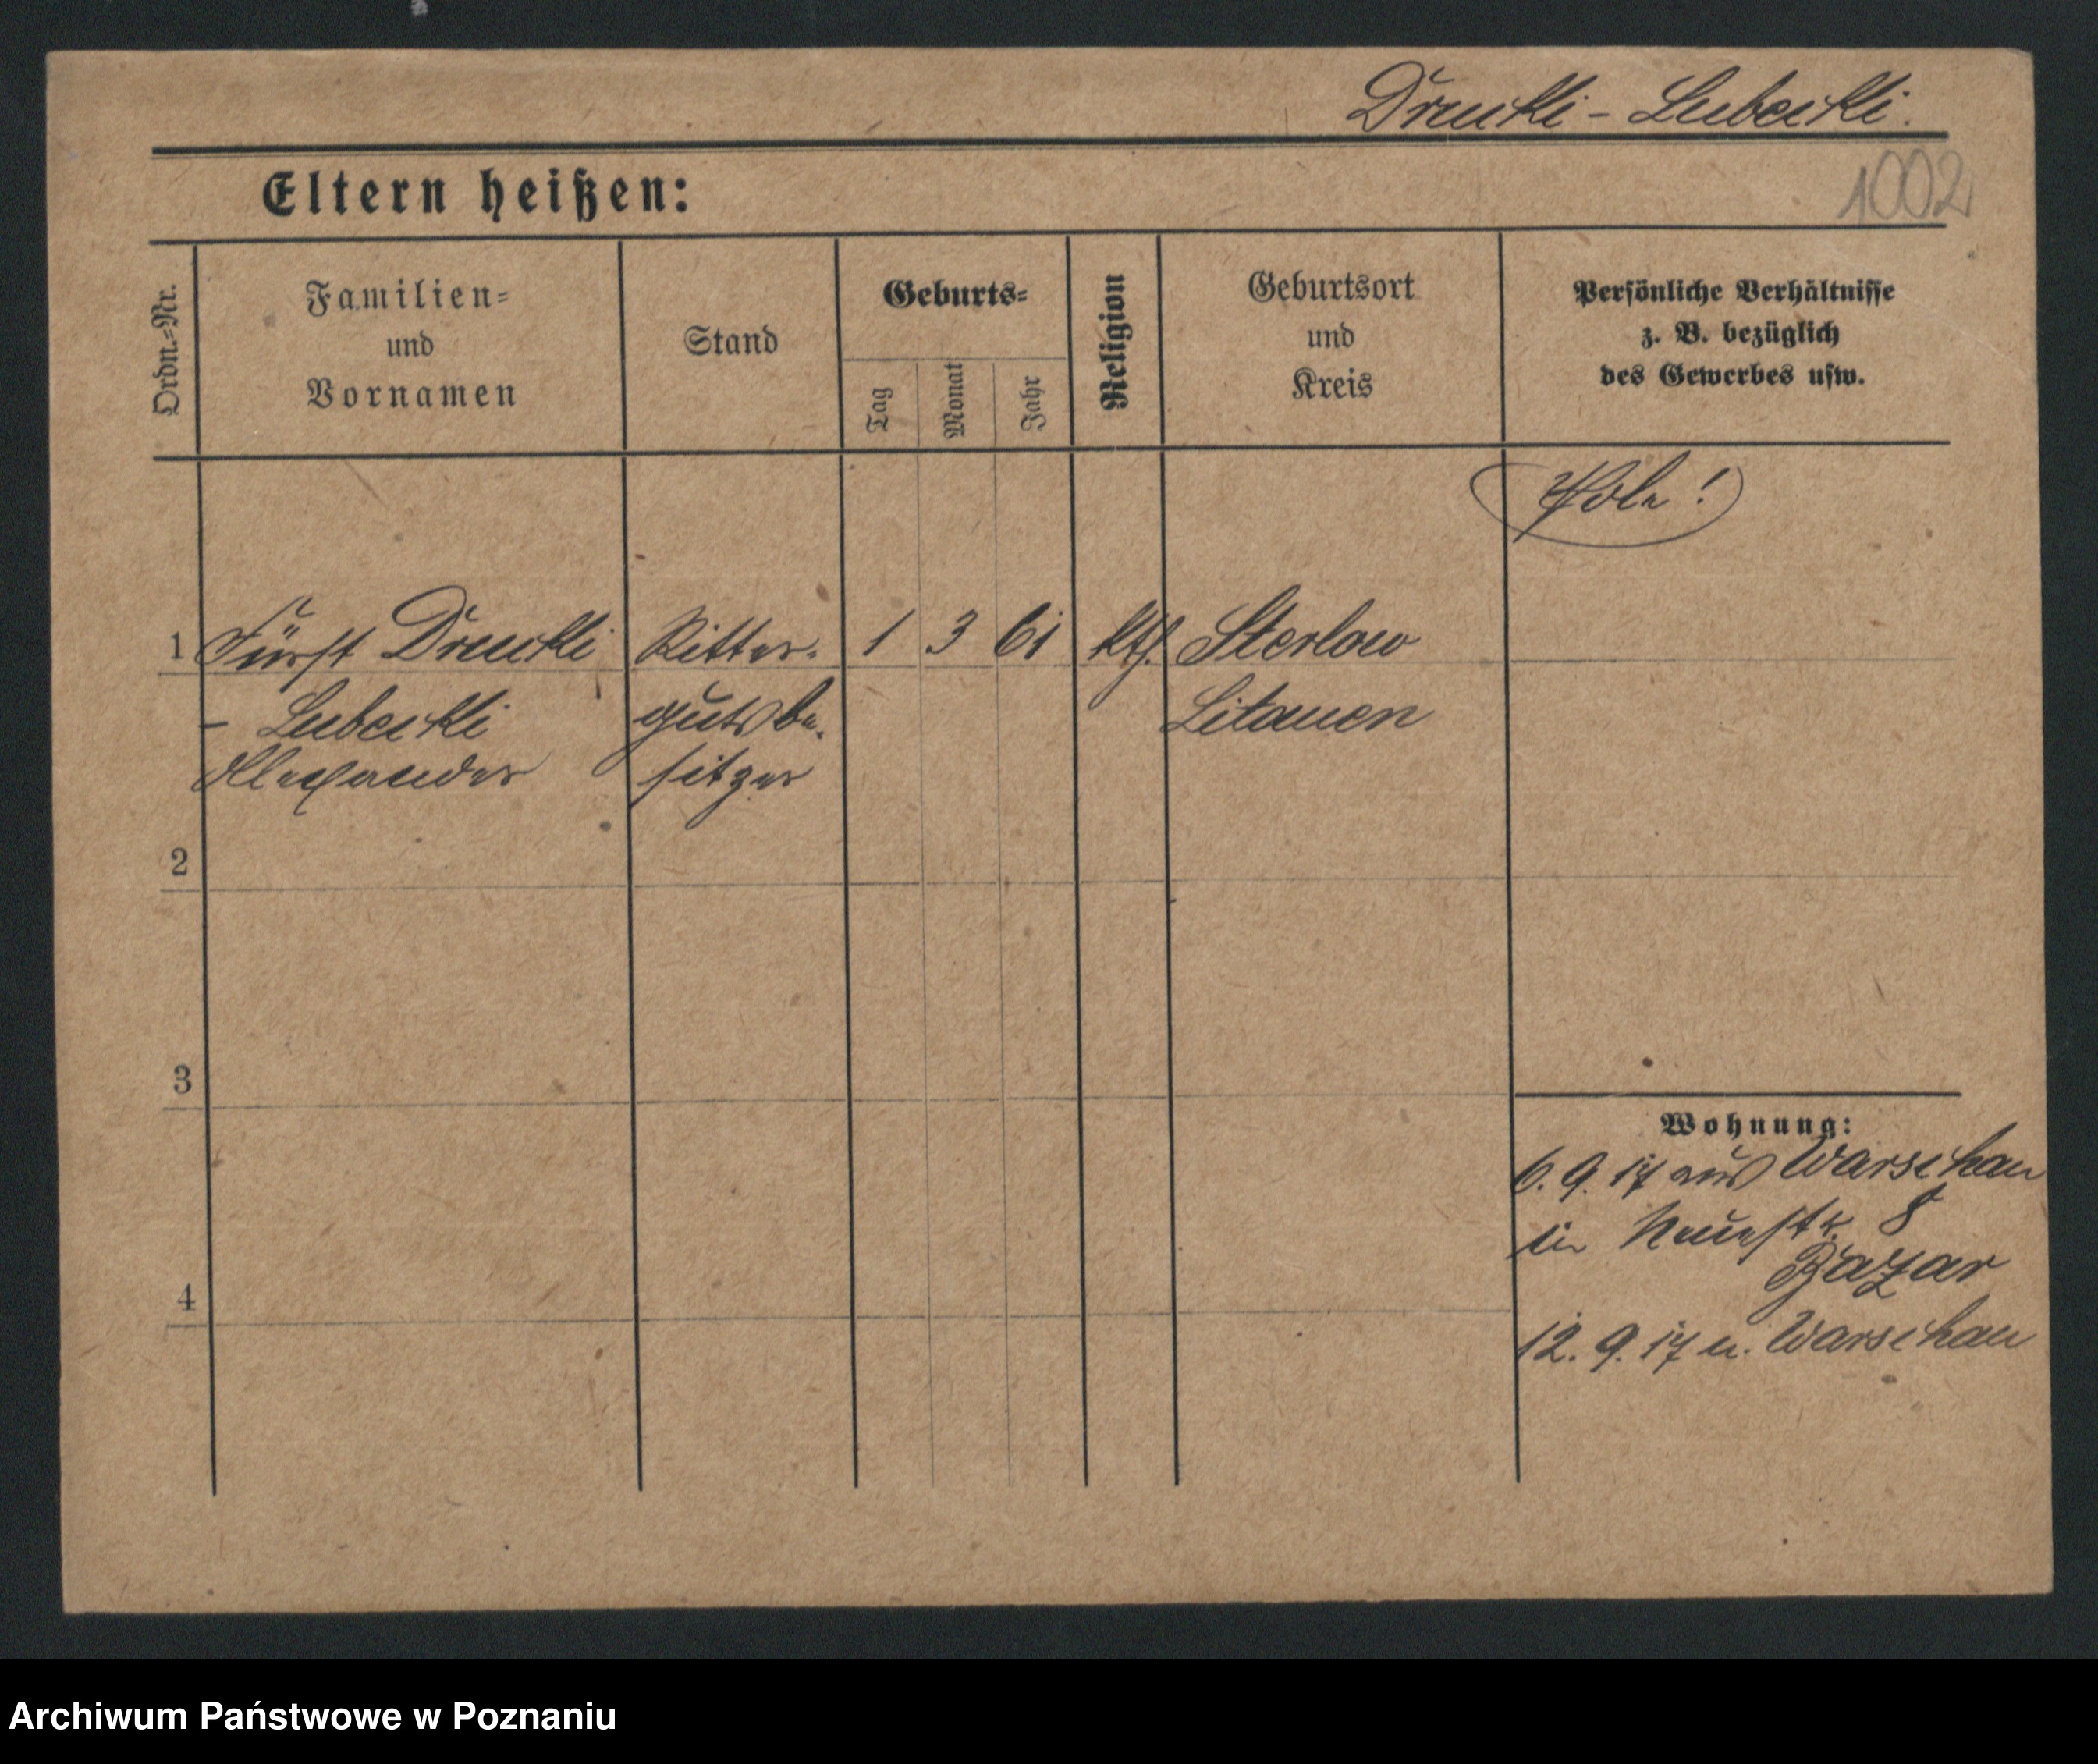 Drucki - Lubecki.
Eltern heißen:
1002
Ordn.=Nr.
Familien=
und
Vornamen
Stand
Geburts=
Tag
Monat
Jahr
Religion
Geburtsort
und
Kreis
Persönliche Verhältnisse
z. B. bezüglich
des Gewerbes usw.
Pole!
1 Fürst Drucki Ritter- 1 3 61 kth. Sterlow
- Lubecki gutsbe- Litauen
Alexander sitzer
2
3
4
Wohnung:
6. 9. 17 aus Warschau
in Neuestr. 8
Bazar
12. 9. 17 n. Warschau
Archiwum Państwowe w Poznaniu